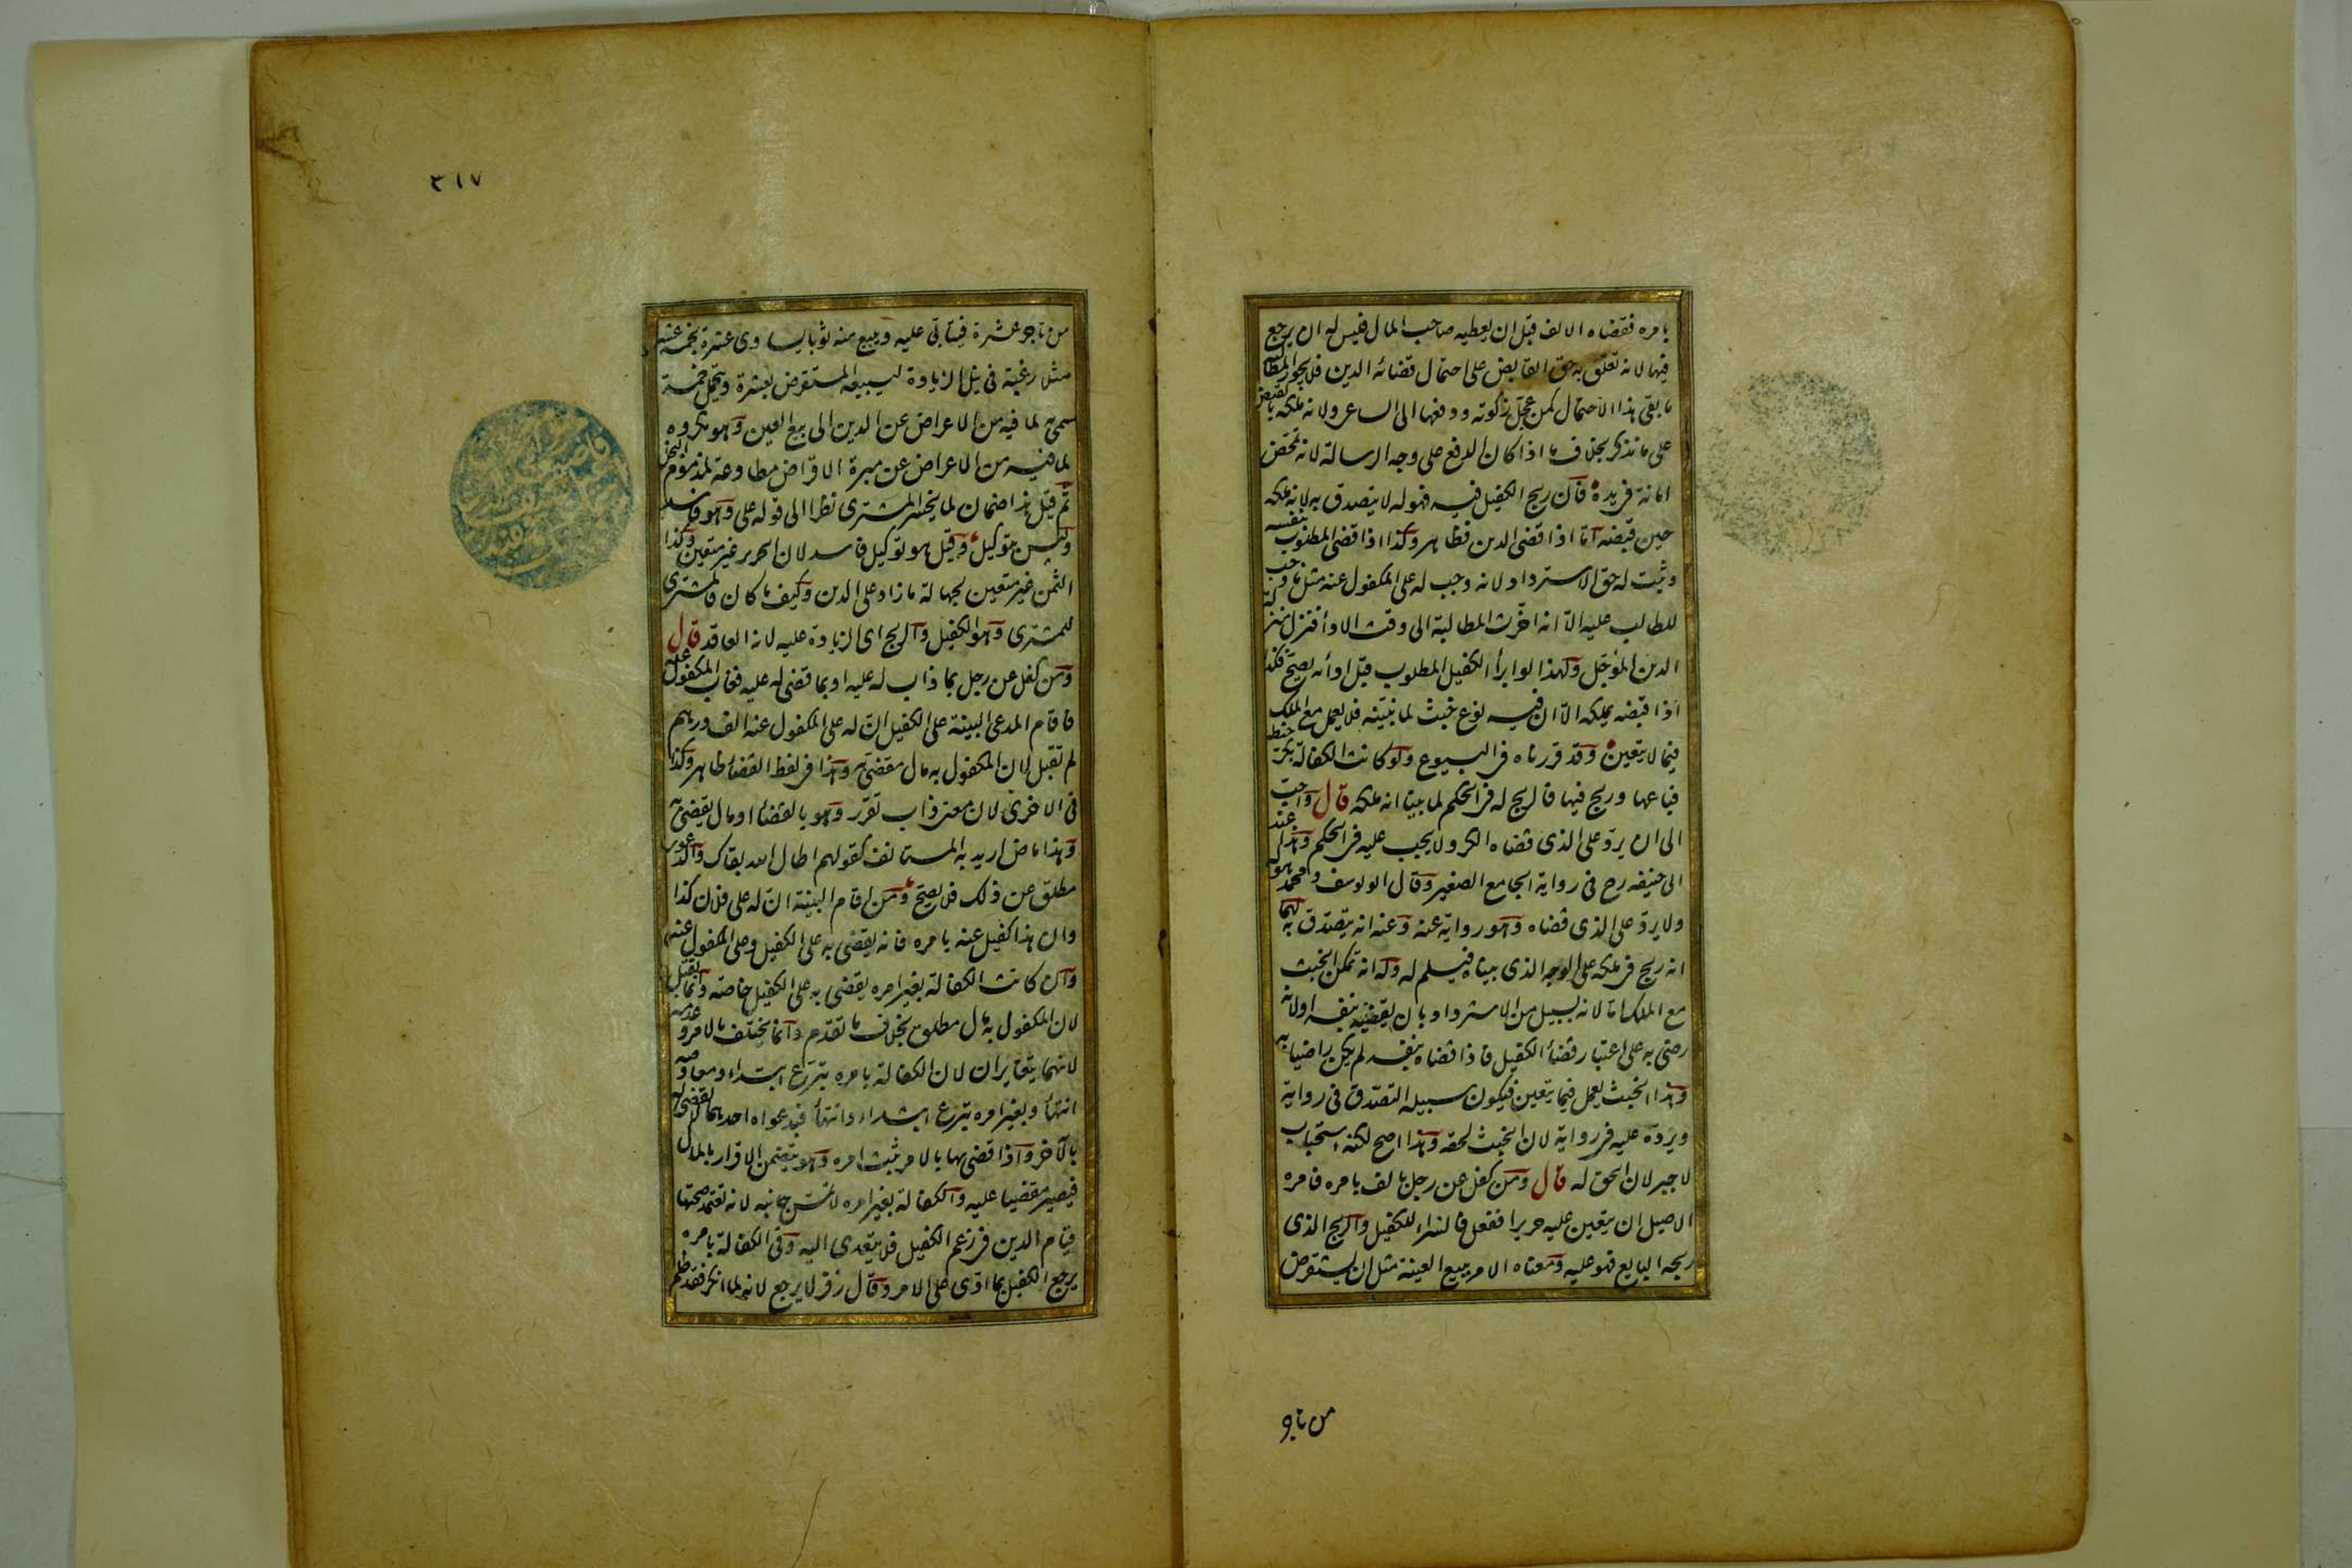 بامره فقضاه الالف قبل ان يعطيه صاحب المال فليس له ان يرجع
فيها لانه تعلق به حق القابض على احتمال قضائه الدين فلا يجوز المطالبة
ما بقى هذا الاحتمال كمن عجل زكوته ودفعها الى الساعى ولانه ملكه بالقبض
على ما نذكر بخلاف ما اذا كان الدفع على وجه الرسالة لانه تمحض
امانة فى يده فان ربح الكفيل فيه فهو له لا يتصدق به لانه ملكه
حين قبضه اما اذا قضى الدين فظاهر وكذا اذا قضى المطلوب بنفسه
وثبت له حق الاسترداد لانه وجب له على المكفول عنه مثل ما وجب
للطالب عليه الا انه اخرت المطالبة الى وقت الادأ فنزل منزلة
الدين المؤجل ولهذا لو ابرأ الكفيل المطلوب قبل ادأنه يصح فكذا
اذا قبضه يملكه الا ان فيه نوع خبث لما نبينه فلا يعمل مع الملك
فيما لا يتعين وقد قررناه فى البيوع ولو كانت الكفالة بكر حنطة
فباعها وربح فيها فالربح له فى الحكم لما بينا انه ملكه قال واحب
الى ان يرد على الذى قضاه الكر ولا يجب عليه فى الحكم وهذا عند
ابى حنيفه رح فى رواية الجامع الصغير وقال ابو يوسف ومحمد هو له
ولا يرد على الذى قضاه وهو رواية عنه وعنه انه يتصدق به لهما
انه ربح فى ملكه على الوجه الذى بيناه فيسلم له وله انه تمكن الخبث
مع الملك اما لانه بسبيل من الاسترداد بان يقضيه بنفسه او لانه
رضى به على اعتبار قضأ الكفيل فاذا قضاه بنفسه لم يكن راضيا به
وهذا الخبث يعمل فيما يتعين فيكون سبيله التصدق فى رواية
ويرده عليه فى رواية لان الخبث لحقه وهذا اصح لكنه استحباب
لا جبر لان الحق له قال ومن كفل عن رجل بالف بامره فامره
الاصيل ان يتعين عليه حريرا ففعل فالشراء للكفيل والربح الذى
ربحه البايع فهو عليه ومعناه الامر ببيع العينة مثل ان يستقرض
من تاجر
٣١٧
من تاجر عشرة فيتابى عليه ويبيع منه ثوبا يساوى عشرة بخمسة عشر
مثلا رغبة فى نيل الزيادة ليبيعه المستقرض بعشرة ويتحمل خمسة
سمى به لما فيه من الاعراض عن الدين الى بيع العين وهو مكروه
لما فيه من الاعراض عن مبرة الاقراض مطاوعة لمذموم البخل
ثم قيل هذا ضمان لما يخسر المشترى نظرا الى قوله على وهو فاسد
وليس بتوكيل وقيل هو توكيل فاسد لان الحرير غير متعين وكذا
الثمن غير متعين لجهالة ما زاد على الدين وكيف ما كان فالمشترى
للمشترى وهو الكفيل والربح اى الزيادة عليه لانه العاقد قال
ومن كفل عن رجل بما ذاب له عليه او بما قضى له عليه فغاب المكفول عنه
فاقام المدعى البينة على الكفيل ان له على المكفول عنه الف درهم
لم تقبل لان المكفول به مال مقضى به وهذا فى لفظ القضأ ظاهر وكذا
فى الاخرى لان معنى ذاب تقرر وهو بالقضأ او مال يقضى به
وهذا ماض اريد به المستانف كقولهم اطال الله بقاك والدعوى
مطلق عن ذلك فلا يصح ومن اقام البينة ان له على فلان كذا
وان هذا كفيل عنه بامره فانه يقضى به على الكفيل وعلى المكفول عنه
وان كانت الكفالة بغير امره يقضى به على الكفيل خاصة وانما تقبل
لان المكفول به مال مطلق بخلاف ما تقدم وانما يختلف بالامر وعدمه
لانهما يتغايران لان الكفالة بامره تبرع ابتداء ومعاوضة
انتهأ وبغير امره تبرع ابتداء وانتهأ فبدعواه احدهما لا يقضى له
بالآخر واذا قضى بها بالامر ثبت امره وهو يتضمن الاقرار بالمال
فيصير مقضيا عليه والكفالة بغير امره لا تمس جانبه لانه تعتمد صحتها
قيام الدين فى زعم الكفيل فلا يتعدى اليه وفى الكفالة بامره
يرجع الكفيل بما ادى على الامر وقال زفر لا يرجع لانه لما انكر فقد ظلم